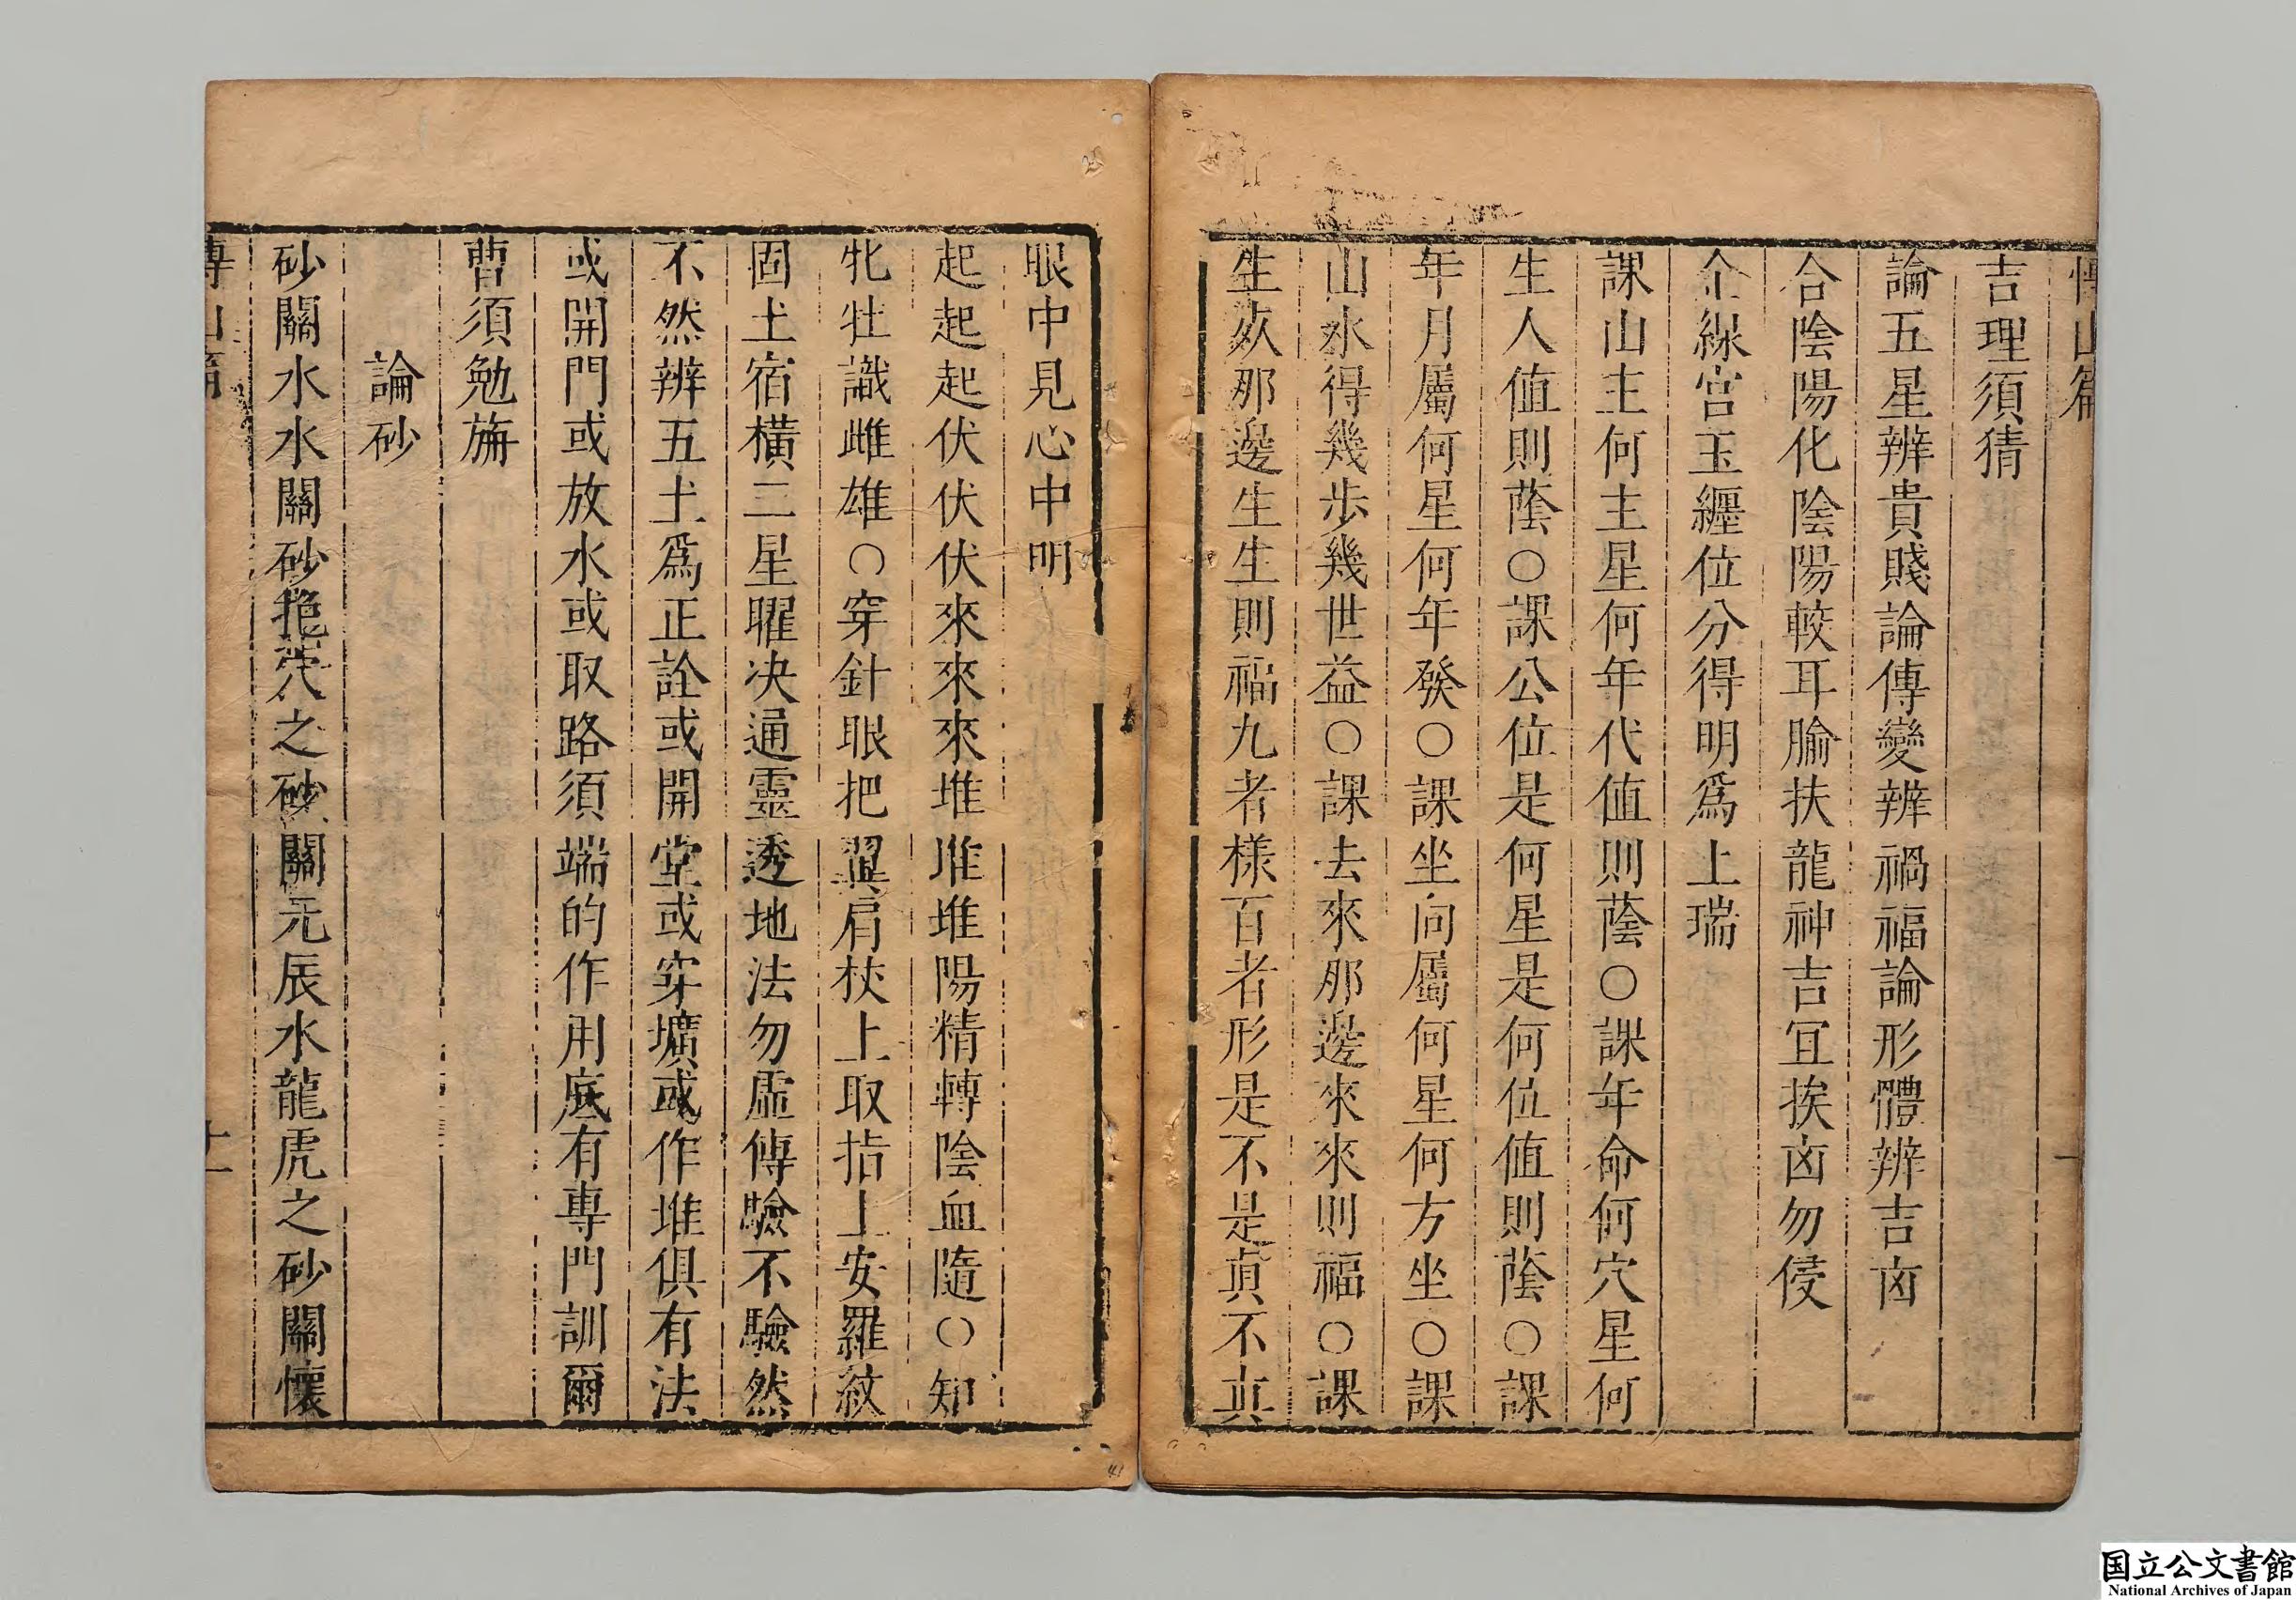 傳山篇
吉理須猜
論五星辨貴賤論傳變辨禍福論形體辨吉凶
合陰陽化陰陽較耳腧扶龍神吉宜挨凶勿侵
个綠宮玉纏位分得明爲上瑞
課山主何主星何年代值則蔭○課年命何穴星何
生人值則蔭○課公位是何星是何位值則蔭○課
年月屬何星何年發○課坐向屬何星何方坐○課
山水得幾步幾世益○課去來那邊來來則福○課
生夾那邊生生則福九者樣百者形是不是真不真
眼中見心中明
起起起伏伏伏來來來堆堆堆陽精轉陰血隨○知
牝牡識雌雄○穿針眼把翼肩杖上取指上安羅紋
固土宿橫二星曜決通靈透地法勿虛傳驗不驗然
不然辨五土土爲正詮或開堂或穿壙或作堆俱有法
或開門或放水或取路須端的作用底有專門訓爾
曹須勉旃
論砂
砂關水水關砂抱穴之砂關元辰水龍虎之砂關懷
傳山篇
十一
国立公文書館
National Archives of Japan